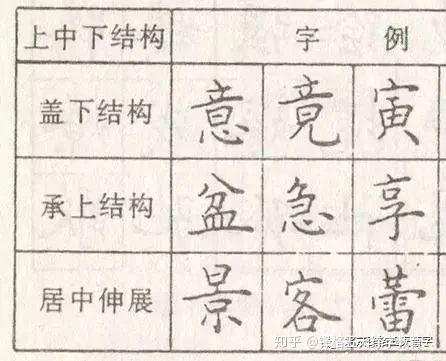 上中下结构 字 例
盖下结构 意 竟 寅
承上结构 盆 急 享
居中伸展 景 客 蕾
知乎